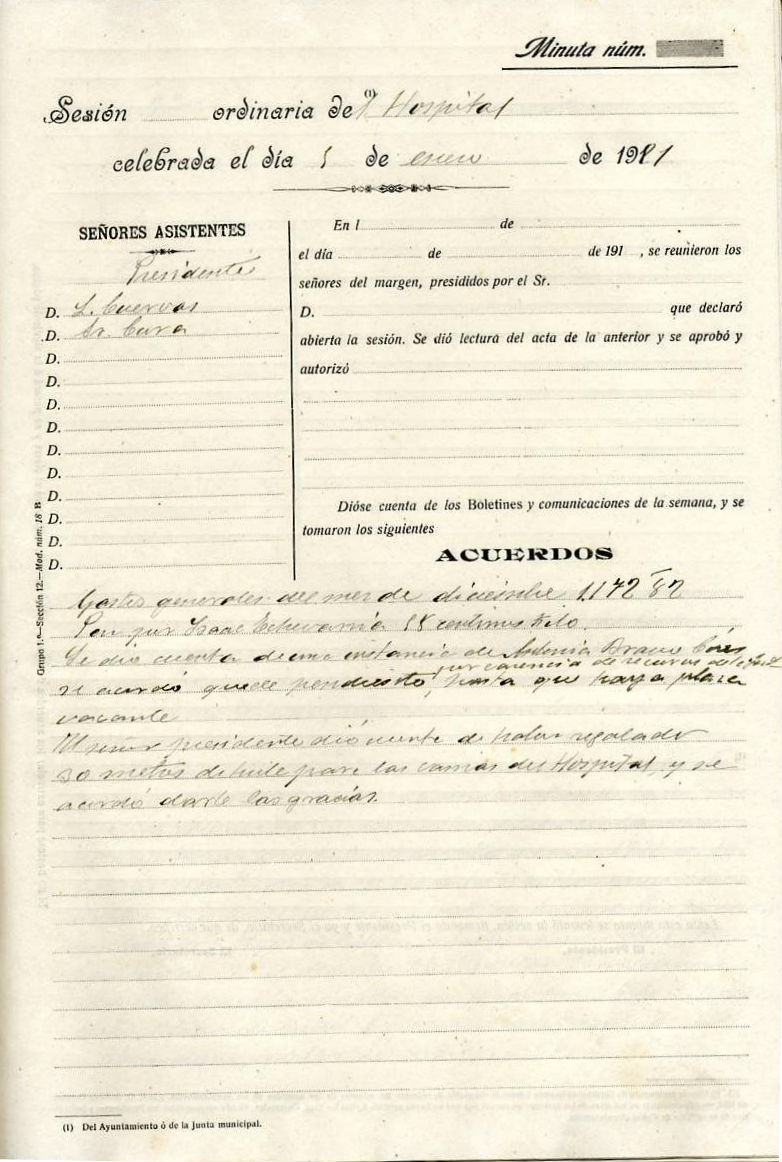 Minuta núm.
Sesión ordinaria de(1)l Hospital
celebrada el día 5 de enero de 1921
SEÑORES ASISTENTES
Presidente
D. L. Cuervas
D. Sr. Cura
D.
D.
D.
D.
D.
D.
D.
D.
D.
D.
En l de
el día de de 191 , se reunieron los
señores del margen, presididos por el Sr.
D. que declaró
abierta la sesión. Se dió lectura del acta de la anterior y se aprobó y
autorizó
Dióse cuenta de los Boletines y comunicaciones de la semana, y se
tomaron los siguientes
ACUERDOS
Gastos generales del mes de diciembre 1,172'82
Pan por Isaac Echevarría 58 centimos kilo.
Se dió cuenta de una instancia de Antonia Bravo
por carencia de recursos del
se acordó quede pendiente, hasta que haya plaza
vacante
El señor presidente dió cuenta de haber regalado
30 metros de hule para las camas del Hospital, y se
acordó darle las gracias.
Grupo 1.º—Sección 12.—Mod. núm. 18 B
(1) Del Ayuntamiento ó de la Junta municipal.